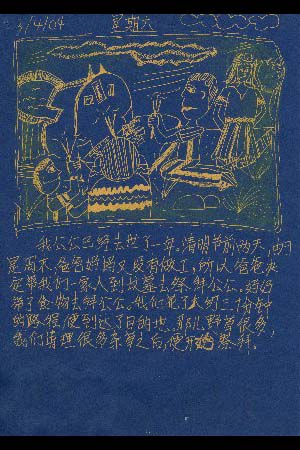 3/4/04 星期六
我公公已经去世了一年。清明节前两天，
是周末，爸爸妈妈又没有做工，所以爸爸决
定带我们一家人到坟墓去祭拜公公。妈妈
带了食物去拜公公。我们花了三十分钟
的路程，便到达了目的地。那儿野草很多，
我们清理很多杂草之后，便开始祭拜。